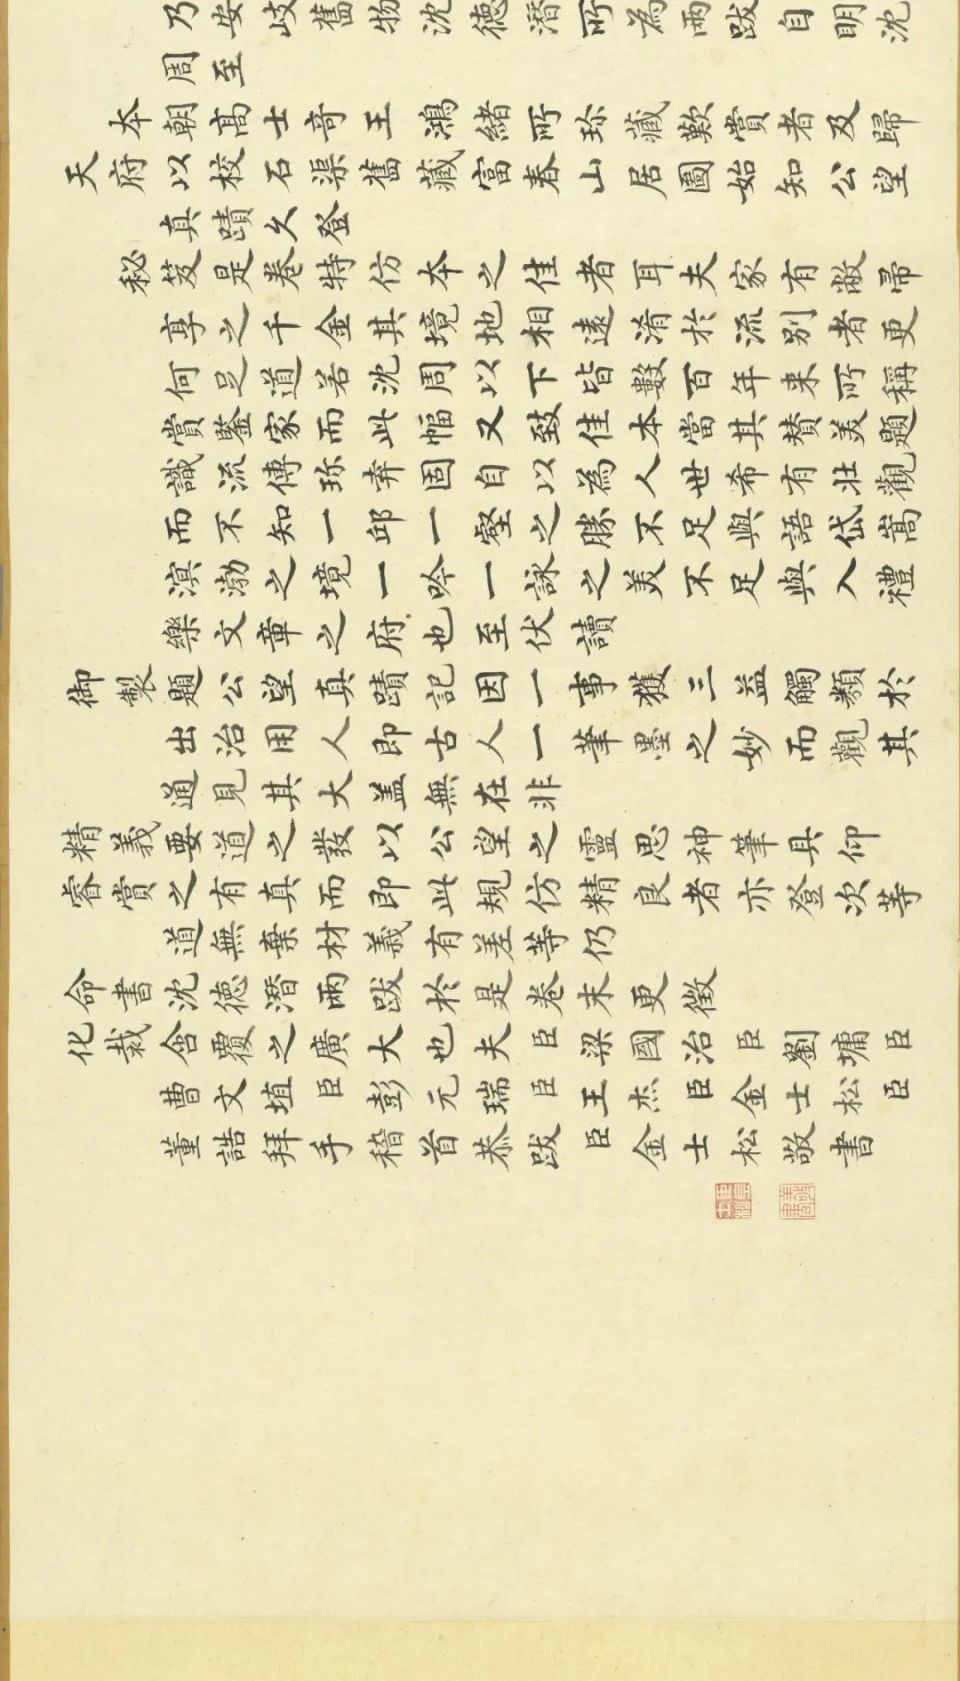 乃安岐舊物沈德潛所為兩跋自明沈
周至
本朝高士奇王鴻緒所珍藏歎賞者及歸
天府以校石渠舊藏富春山居圖始知公望
真蹟久登
秘笈是卷特仿本之佳者耳夫家有敝帚
享之千金其境地相遠淆於流別者更
何足道若沈周以下皆數百年來所稱
賞鑒家而此幅又致佳本當其贊美題
識流傳珍弆固自以為人世希有壯觀
而不知一邱一壑之勝不足與語岱嵩
溟渤之境一吟一詠之美不足與入禮
樂文章之府也至伏讀
御製題公望真蹟記因一事獲三益觸類於
出治用人即古人一筆墨之妙而觀其
通見其大蓋無在非
精義要道之發以公望之靈思神筆具仰
睿賞之有真而即此規仿精良者亦登次等
道無棄材義有差等仍
命書沈德潛兩跋於是卷末更徵
化裁含覆之廣大也夫臣梁國治臣劉墉臣
曹文埴臣彭元瑞臣王杰臣金士松臣
董誥拜手稽首恭跋 金士松敬書